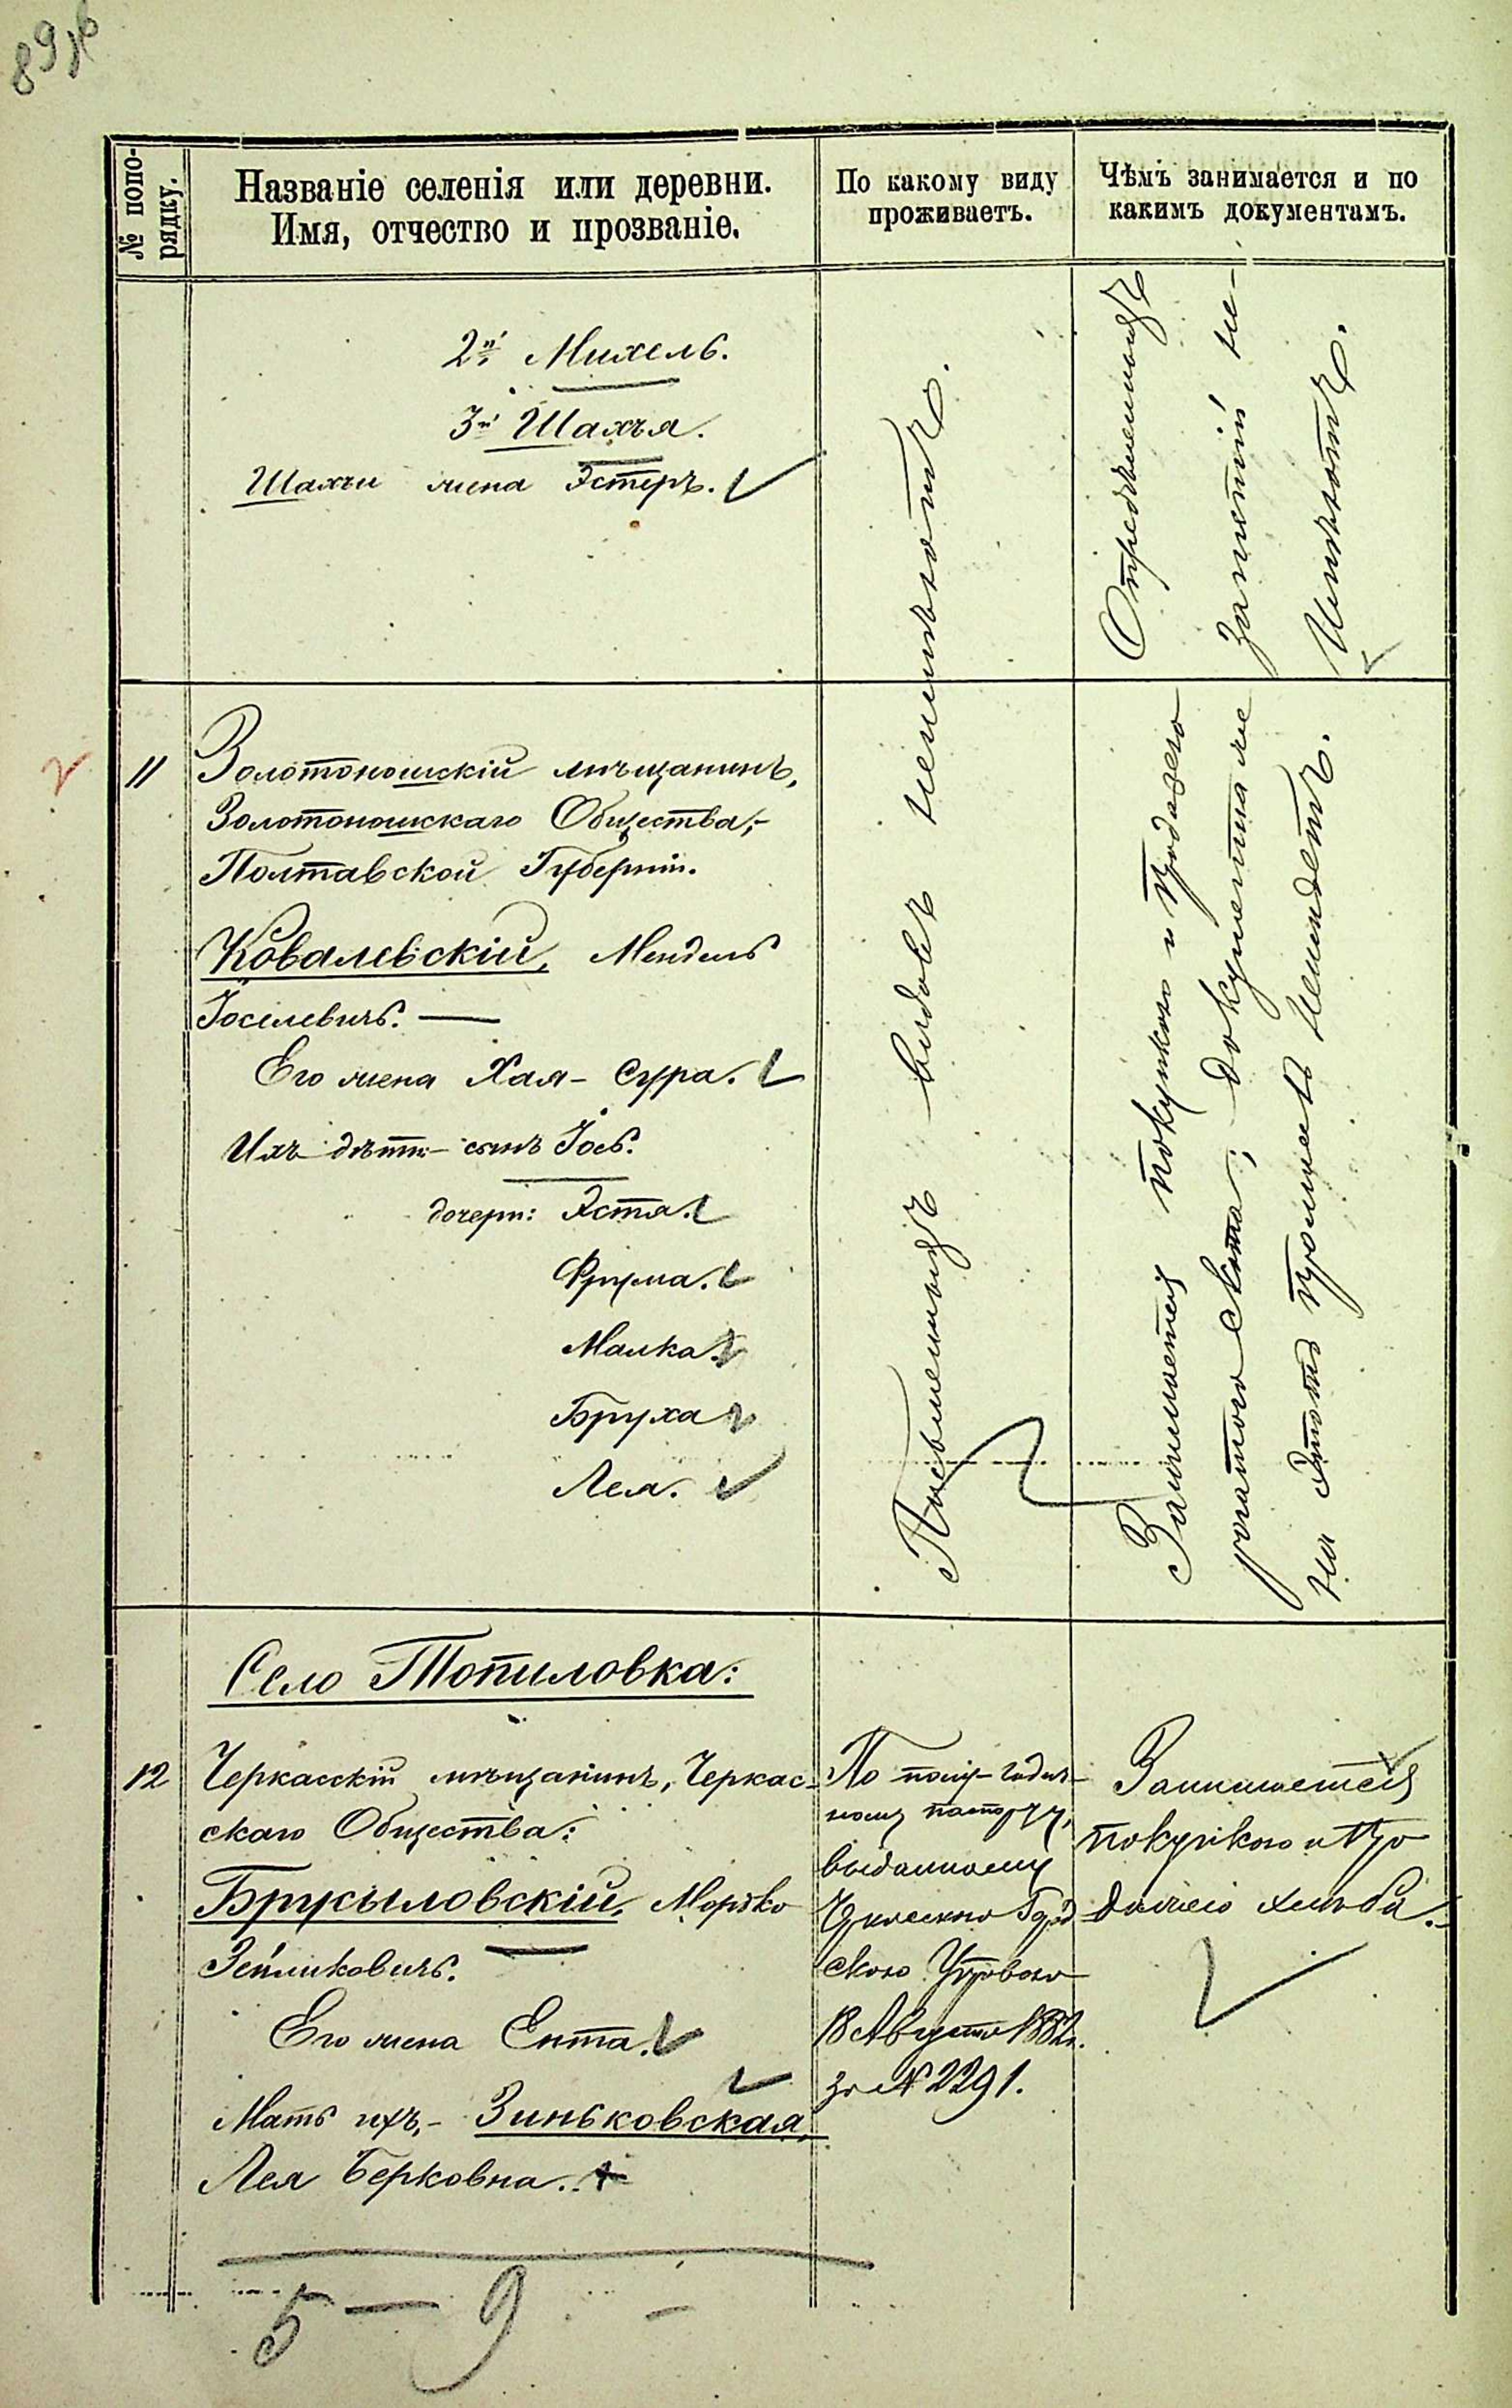 89 об
№ попо-
рядку.
Названіе селенія или деревни.
Имя, отчество и прозваніе.
По какому виду
проживаетъ.
Чѣмъ занимается и по
какимъ документамъ.
2й Михель.
3й Шахъя.
Шахъи жена Эстеръ.
Опредѣленныхъ
занятій не-
имѣютъ.
11
Золотоношскій мѣщанинъ,
Золотоношскаго Общества,
Полтавской Губерніи.
Ковалевскій, Мендель
Іоселевичъ.
Его жена Хая-Сура.
Ихъ дѣти: сынъ Іось.
дочери: Эстя.
Фрума.
Малка.
Бруха
Лея.
Письменныхъ видовъ неимѣютъ.
Занимается покупкою и продажею
рогатого скота, документа же
на этотъ промыселъ неимѣетъ.
Село Топиловка:
12
Черкасскій мѣщанинъ, Черкас-
скаго Общества:
Брусыловскій, Мортко
Зейликовичъ.
Его жена Ента.
Мать ихъ, - Зиньковская,
Лея Берковна.
По полу-годич-
ному паспорту,
выданному
Город
скою Управою
18 Августа 1882г.
за № 2291.
Занимается
покупкою и про
дажею хлѣба.
5 — 9